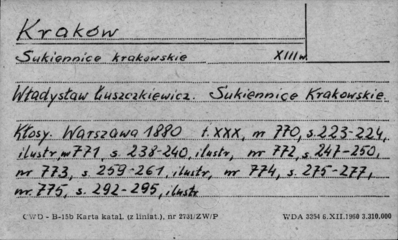 Kraków
Sukiennice krakowskie XIII w
Władysław Łuszczkiewicz. Sukiennice Krakowskie.
Kłosy. Warszawa 1880 t. XXX, nr 770, s. 223-224,
ilustr, nr 771, s. 238-240, ilustr, nr 772, s. 247-250,
nr 773, s. 259-261, ilustr, nr 774, s. 275-277,
nr. 775, s. 292-295, ilustr
CWD - B-15b Karta katal. (z liniat.), nr 2731/ZW/P WDA 3354 6.XII.1960 3.210.000